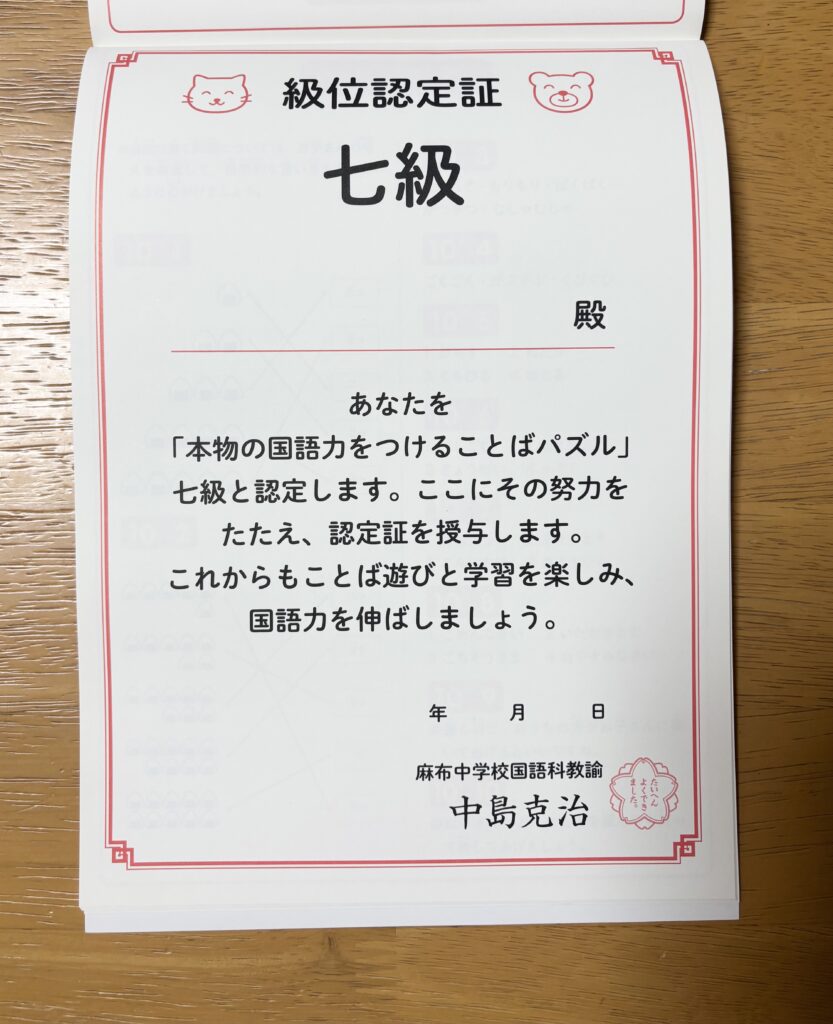 級位認定証
七級
殿
あなたを
「本物の国語力をつけることばパズル」
七級と認定します。ここにその努力を
たたえ、認定証を授与します。
これからもことば遊びと学習を楽しみ、
国語力を伸ばしましょう。
年 月 日
麻布中学校国語科教諭
中島克治
たいへん
よくでき
ました。